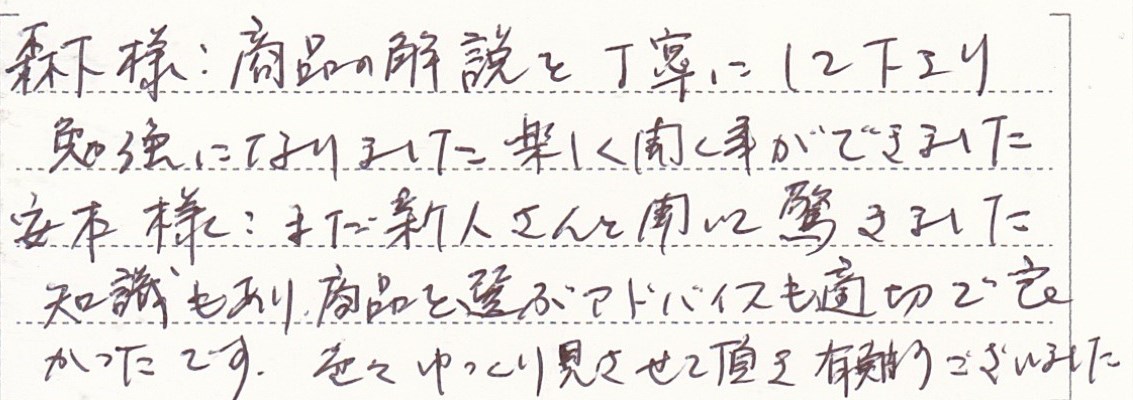 森下様:商品の解説を丁寧にして下さり
勉強になりました楽しく聞く事ができました
安本様:まだ新人さんと聞いて驚きました
知識もあり、商品を選ぶアドバイスも適切で良
かったです。色々ゆっくり見させて頂き有難うございました